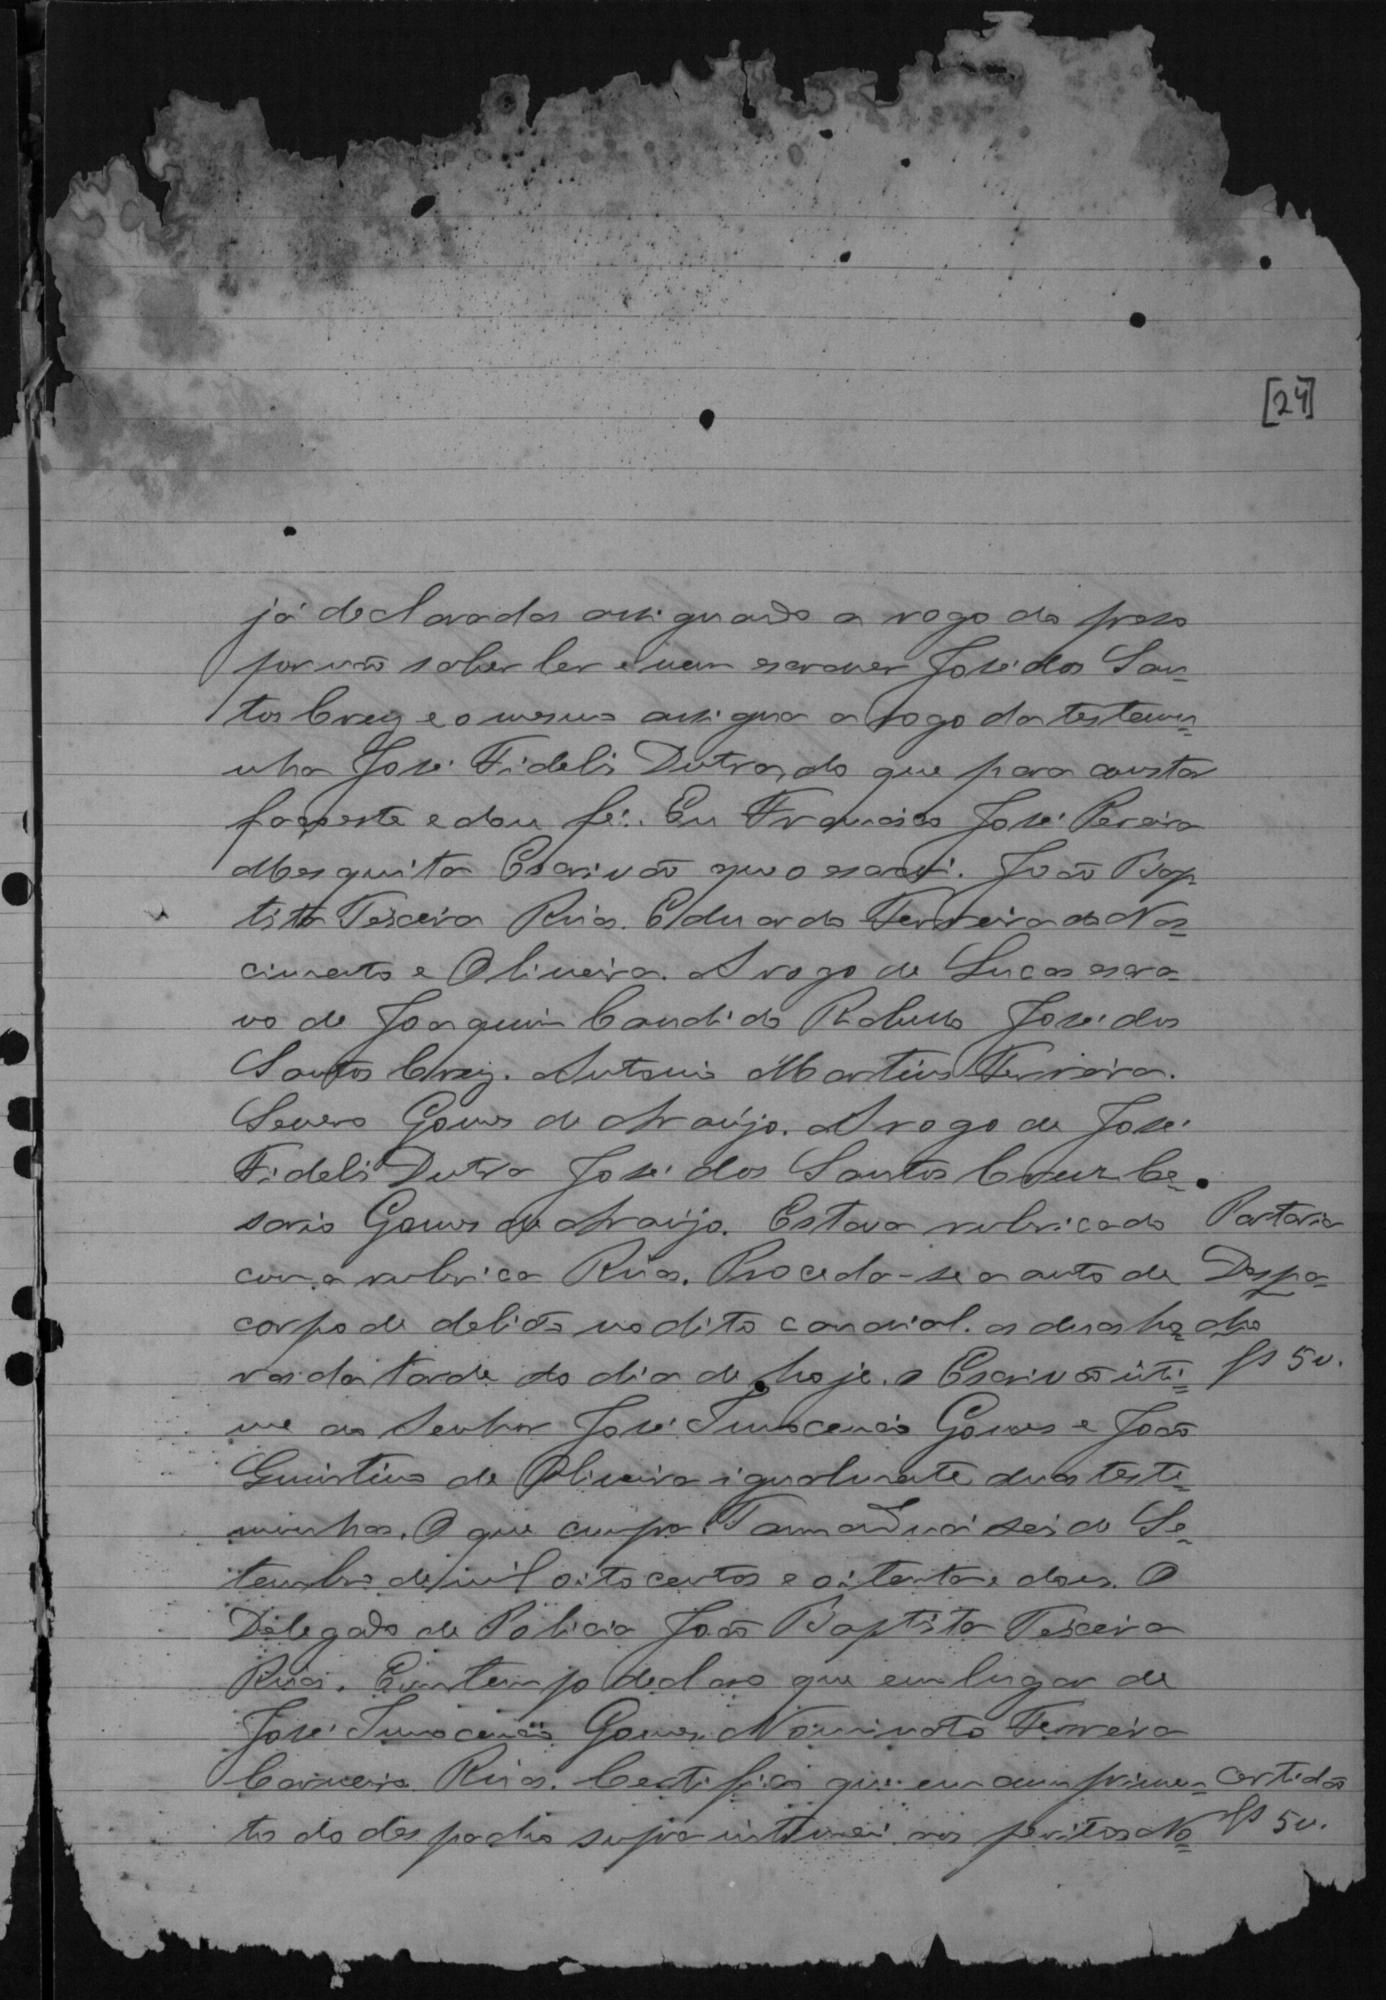 [24]
já declarados assignando a rogo do preso
por não saber ler e nem escrever José dos San-
tos Cruz e o mesmo assigna a rogo da testemu-
nha José Fidelis Dutra, do que para constar
faço este e dou fé. Eu Francisco José Pereira
Mesquita Escrivão que o escrevi. João Bap-
tista Teixeira Ruas. Eduardo Ferreira do Nas-
cimento e Oliveira. A rogo de Lucas escra-
vo de Joaquim Candido Rabello José dos
Santos Cruz. Antonio Martins Ferreira.
Severo Gomes de Araújo. A rogo de José
Fidelis Dutra José dos Santos Cruz. Ce-
sario Gomes de Araújo. Estava rubricado
com a rubrica Ruas. Proceda-se a auto de
corpo de delicto no dito as duas ho-
ras da tarde do dia de hoje. o Escrivão inti-
me ao Senhor José Innocencio Gomes e João
de Oliveira igualmente duas teste-
munhas. O que cumpra. Tamanduá seis de Se-
tembro de mil oitocentos e oitenta e dois. O
Delegado de Policia João Baptista Teixeira
Ruas. Em tempo declaro que em lugar de
José Innocencio Gomes. Ferreira
Carneiro. Ruas. Certifico que em cumprimen-
to do despacho supra intimei aos peritos No-
Portaria
Despa-
cho
fs 5v.
Certidão
fs 5v.